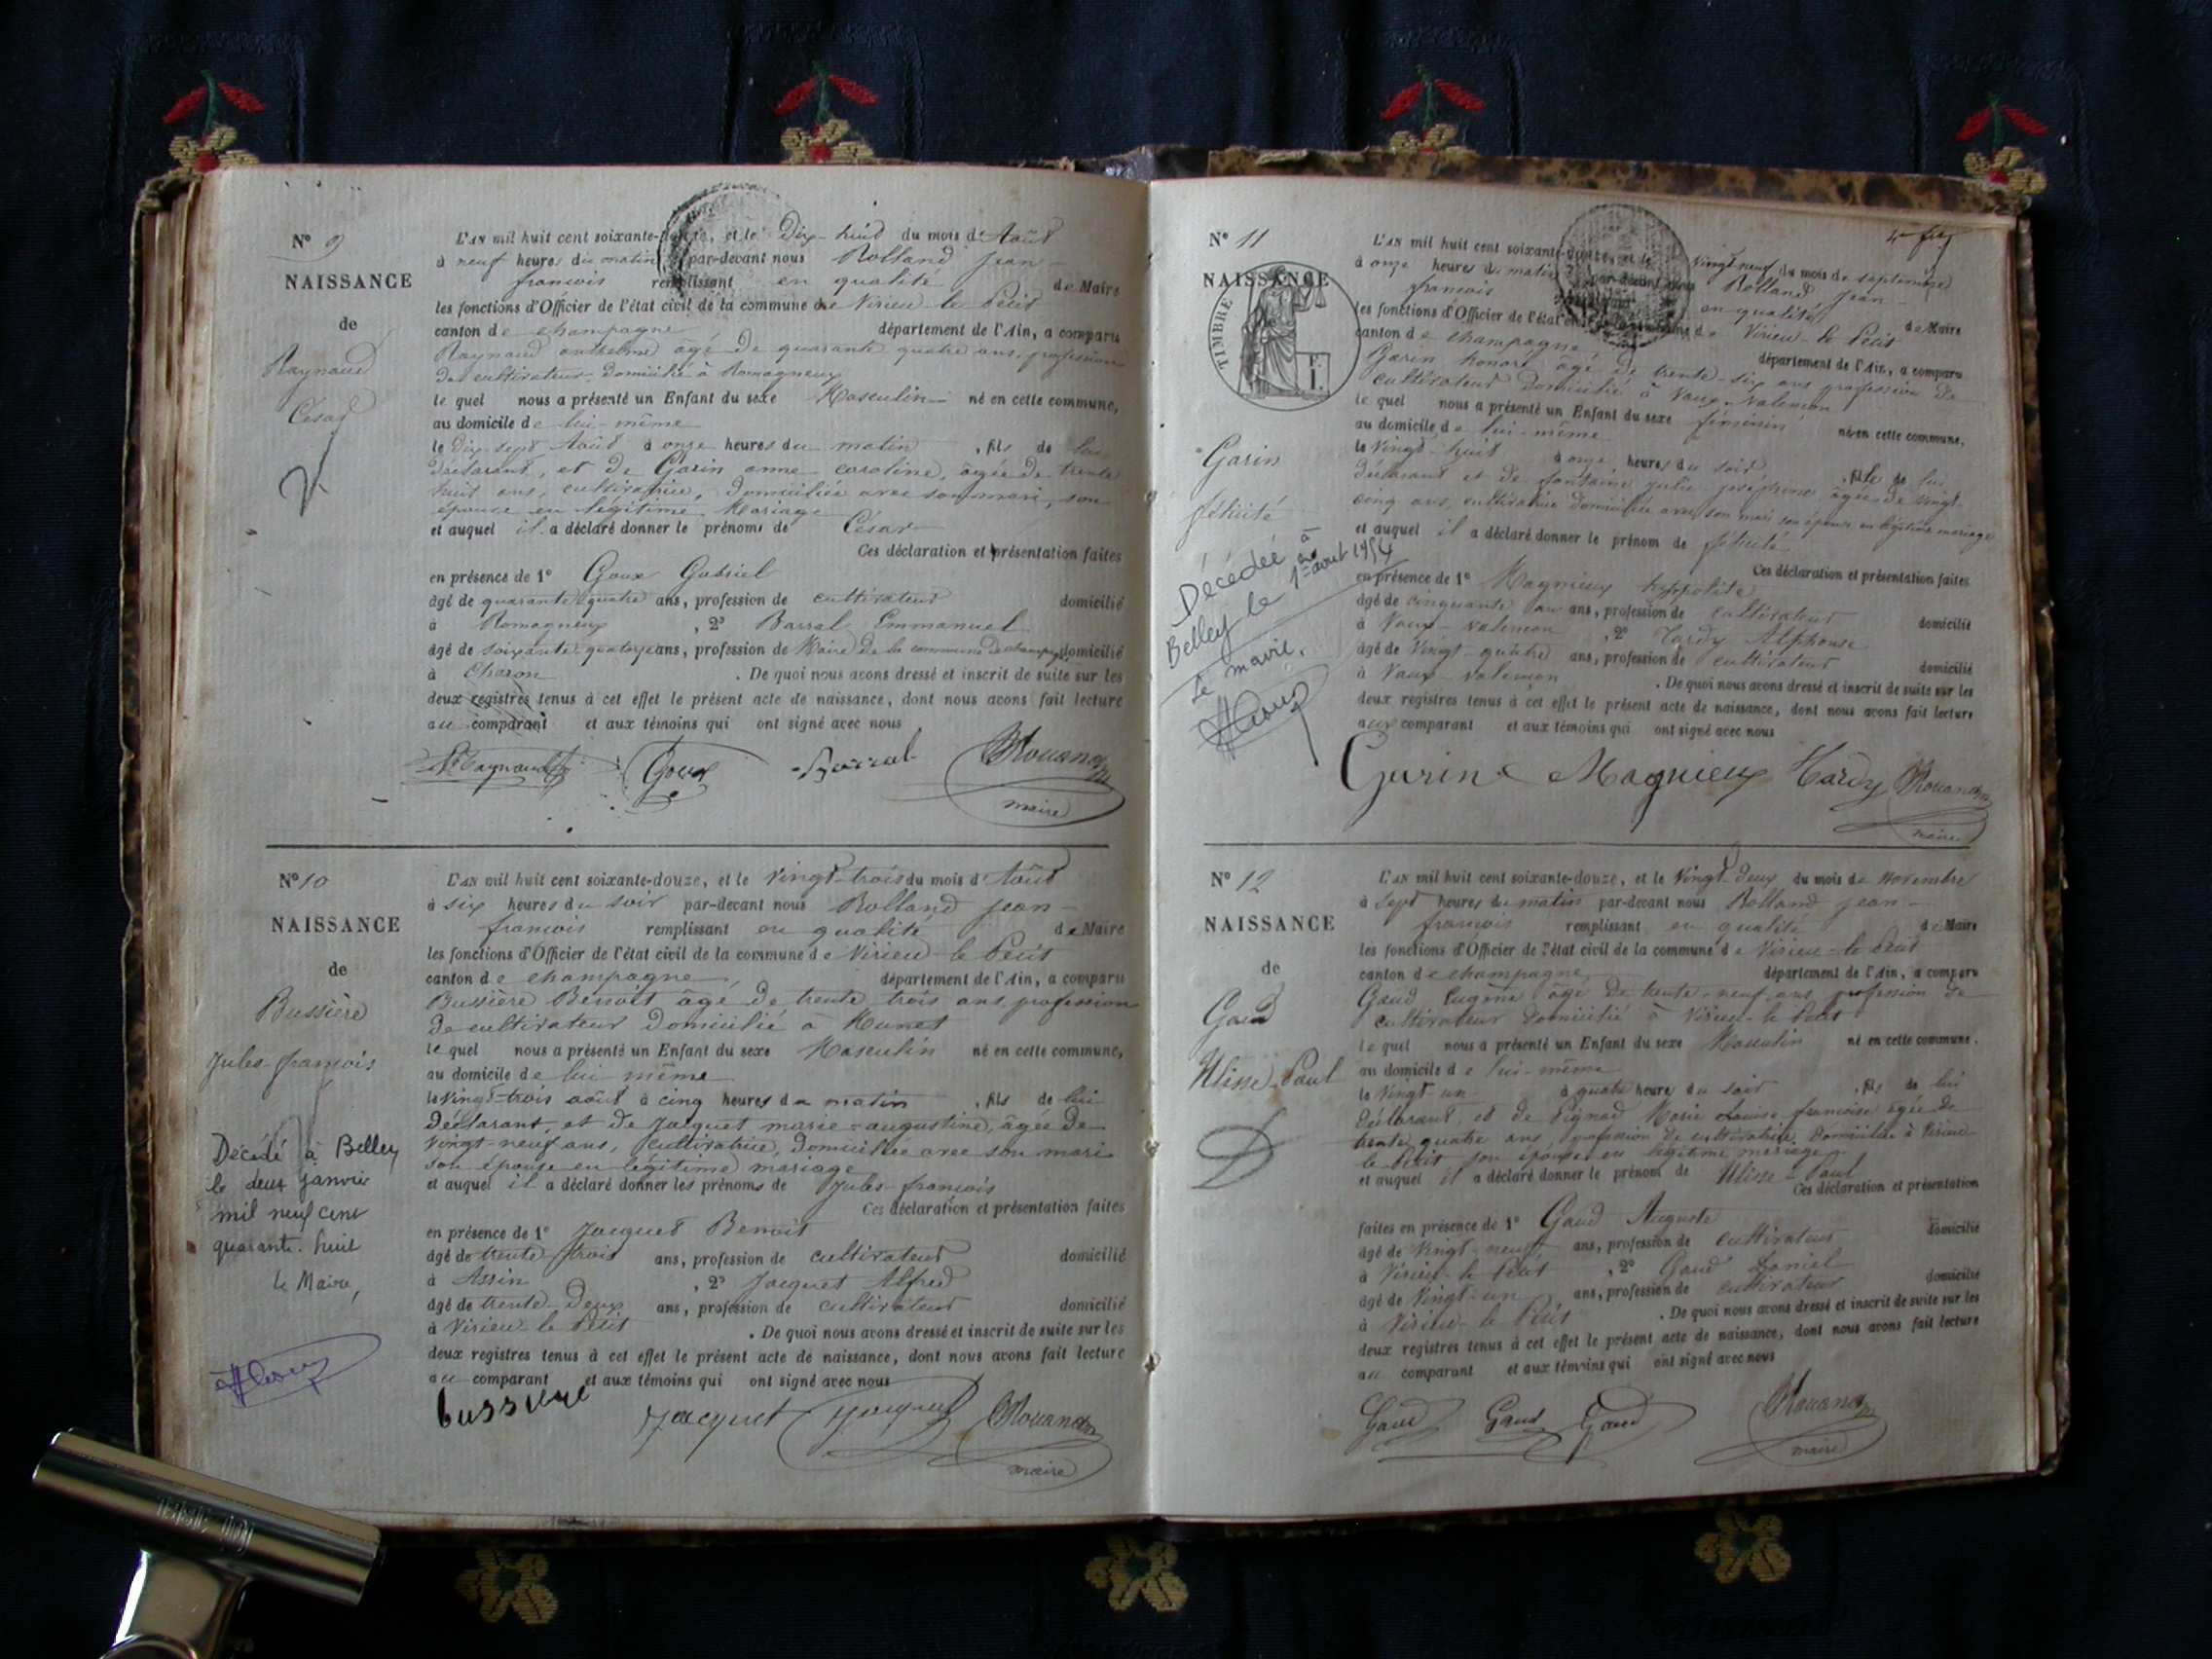 N° 9
NAISSANCE
de
Raynaud
César
L'AN mil huit cent soixante-douze, et le Dix-huit du mois d'Août
à neuf heures du matin par-devant nous Rolland Jean-
françois remplissant en qualité de Maire
les fonctions d'Officier de l'état civil de la commune de Virieu-le-Petit
canton de champagne département de l'Ain, a comparu
Raynaud anthelme âgé de quarante quatre ans, profession
de cultivateur domicilié à Romagneux
le quel nous a présenté un Enfant du sexe Masculin né en cette commune,
au domicile de lui-même
le Dix-sept Août à onze heures du matin, fils de lui
déclarant, et de Garin anne caroline, âgée de trente
huit ans, cultivatrice, domiciliée avec son mari, son
épouse en légitime Mariage
et auquel il a déclaré donner le prénoms de César
Ces déclaration et présentation faites
en présence de 1° Goux Gabriel
âgé de quarante quatre ans, profession de cultivateur domicilié
à Romagneux, 2° Barral Emmanuel
âgé de soixante quatorze ans, profession de Maire de la commune de champagne domicilié
à Charon. De quoi nous avons dressé et inscrit de suite sur les
deux registres tenus à cet effet le présent acte de naissance, dont nous avons fait lecture
au comparant et aux témoins qui ont signé avec nous
Raynaud Goux Barral
maire
N° 10
NAISSANCE
de
Bussière
Jules-françois
Décédé à Belley
le deux Janvier
mil neuf cent
quarante-huit
Le Maire,
L'AN mil huit cent soixante-douze, et le Vingt-trois du mois d'Août
à six heures du soir par-devant nous Rolland Jean-
françois remplissant en qualité de Maire
les fonctions d'Officier de l'état civil de la commune de Virieu-le-Petit
canton de champagne, département de l'Ain, a comparu
Bussière Benoît âgé de trente trois ans, profession
de cultivateur domicilié à Munet
le quel nous a présenté un Enfant du sexe Masculin né en cette commune,
au domicile de lui-même
le Vingt-trois août à cinq heures du matin, fils de lui
Déclarant, et de Jacquet marie-augustine, âgée de
Vingt-neuf ans, cultivatrice, domiciliée avec son mari
son épouse en légitime mariage
et auquel il a déclaré donner les prénoms de Jules-françois
Ces déclaration et présentation faites
en présence de 1° Jacquet Benoit
âgé de trente trois ans, profession de cultivateur domicilié
à Assin, 2° Jacquet Alfred
âgé de trente-Deux ans, profession de cultivateur domicilié
à Virieu le Petit. De quoi nous avons dressé et inscrit de suite sur les
deux registres tenus à cet effet le présent acte de naissance, dont nous avons fait lecture
au comparant et aux témoins qui ont signé avec nous
bussiere Jacquet Jacquet
maire
4e
N° 11
NAISSANCE
TIMBRE
Garin
félicité
Décédée à
Belley le 1er août 1954
Le maire,
L'AN mil huit cent soixante-douze, et le Vingt neuf du mois de septembre
à onze heures du matin par-devant nous Rolland Jean-
françois en qualité de Maire
les fonctions d'Officier de l'état de Virieu-le-Petit
canton de champagne département de l'Ain, a comparu
Garin honoré âgé de trente-six ans profession de
cultivateur domicilié à Vaux-Valemon
le quel nous a présenté un Enfant du sexe féminin né en cette commune,
au domicile de lui-même
le Vingt-huit à onze heures du soir, fille de lui
déclarant et de fontaine julie joséphine âgée de vingt
cinq ans, cultivatrice domiciliée avec son mari son épouse en légitime mariage
et auquel il a déclaré donner le prénom de félicité
Ces déclaration et présentation faites
en présence de 1° Magnieux hyppolite
âgé de cinquante ans, profession de cultivateur domicilié
à Vaux-Valemon, 2° Tardy Alphonse
âgé de Vingt-quatre ans, profession de cultivateur domicilié
à Vaux-Valemon. De quoi nous avons dressé et inscrit de suite sur les
deux registres tenus à cet effet le présent acte de naissance, dont nous avons fait lecture
aux comparant et aux témoins qui ont signé avec nous
Garin Magnieux Tardy
maire
N° 12
NAISSANCE
de
Gaud
Ulisse-Paul
L'AN mil huit cent soixante-douze, et le Vingt-Deux du mois de Novembre
à Sept heures du matin par-devant nous Rolland Jean-
françois remplissant en qualité de Maire
les fonctions d'Officier de l'état civil de la commune de Virieu-le-Petit
canton de champagne, département de l'Ain, a comparu
Gaud Eugène âgé de trente-neuf ans, profession de
cultivateur domicilié à Virieu-le Petit
le quel nous a présenté un Enfant du sexe Masculin né en cette commune,
au domicile de lui-même
le Vingt-un à quatre heures du soir, fils de lui
Déclarant, et de Marie Louise françoise âgée de
trente quatre ans, profession de cultivatrice. Domiciliée à Virieu-
le Petit son épouse en légitime mariage
et auquel il a déclaré donner le prénom de Ulisse-Paul
Ces déclaration et présentation
faites en présence de 1° Gaud Auguste
âgé de Vingt-neuf ans, profession de cultivateur domicilié
à Virieu-le Petit, 2° Gaud Daniel
âgé de Vingt-un ans, profession de cultivateur domicilié
à Virieu-le Petit. De quoi nous avons dressé et inscrit de suite sur les
deux registres tenus à cet effet le présent acte de naissance, dont nous avons fait lecture
au comparant et aux témoins qui ont signé avec nous
Gaud Gaud Gaud
maire